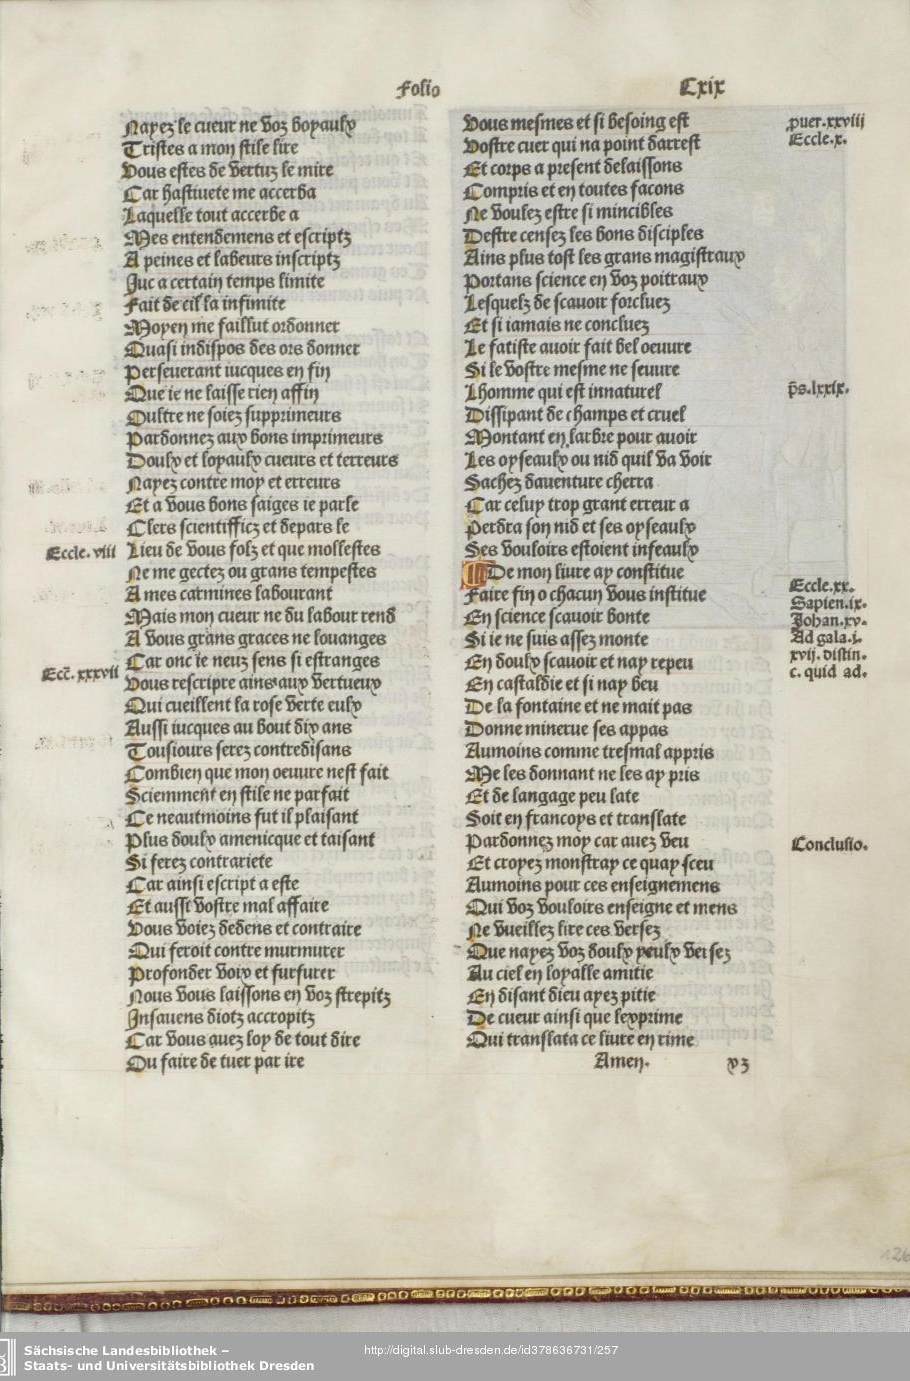 Folio Cxix
Nayez le cueur ne voz boyaulx
Tristes a mon stile lire
Vous estes de vertuz le mire
Car hastiuete me accerba
Laquelle tout accerbe a
Mes entendemens et escriptz
A peines et labeurs inscriptz
Juc a certain temps limite
Fait de cil la infimite
Moyen me faillut ordonner
Quasi indispos des ors donner
Perseuerant iucques en fin
Que ie ne laisse rien affin
Oultre ne soiez supprimeurs
Pardonnez aux bons imprimeurs
Doulx et loyaulx cueurs et terreurs
Nayez contre moy et erreurs
Et a vous bons saiges ie parle
Clers scientifficz et depars le
Eccle. viii
Lieu de vous folz et que mollestes
Ne me gectez ou grans tempestes
A mes carmines labourant
Mais mon cueur ne du labour rend
A vous grans graces ne louanges
Car onc ie neuz sens si estranges
Ecc̄. xxxvii
Vous rescripre ains aux vertueux
Qui cueillent la rose verte eulx
Aussi iucques au bout dix ans
Tousiours serez contredisans
Combien que mon oeuure nest fait
Sciemment en stile ne parfait
Ce neautmoins fut il plaisant
Plus doulx amenicque et taisant
Si ferez contrariete
Car ainsi escript a este
Et aussi vostre mal affaire
Vous voiez dedens et contraire
Qui feroit contre murmurer
Profonder voix et furfurer
Nous vous laissons en voz strepitz
Insauens diotz accropitz
Car vous auez loy de tout dire
Ou faire de tuer par ire
Vous mesmes et si besoing est
Vostre cuer qui na point darrest
Et corps a present delaissons
Compris et en toutes facons
Ne voulez estre si mincibles
Destre censez les bons disciples
Ains plus tost les grans magistraux
Portans science en voz poitraux
Lesquelz de scauoir forcluez
Et si iamais ne concluez
Le fatiste auoir fait bel oeuure
Si le vostre mesme ne seuure
Lhomme qui est innaturel
Dissipant de champs et cruel
Montant en larbre pour auoir
Les oyseaulx ou nid quil va voir
Sachez dauenture cherra
Car celuy trop grant erreur a
Perdra son nid et ses oyseaulx
Ses vouloirs estoient infeaulx
De mon liure ay constitue
Faire fin o chacun vous institue
En science scauoir bonte
Si ie ne suis assez monte
En doulx scauoir et nay repeu
En castaldie et si nay beu
De la fontaine et ne mait pas
Donne minerue ses appas
Aumoins comme tresmal appris
Me les donnant ne les ay pris
Et de langage peu late
Soit en francoys et translate
Pardonnez moy car auez veu
Et croyez monstray ce quay sceu
Aumoins pour ces enseignemens
Qui voz vouloirs enseigne et mens
Ne vueillez lire ces versez
Que nayez voz doulx yeulx versez
Au ciel en loyalle amitie
En disant dieu ayez pitie
De cueur ainsi que lexprime
Qui translata ce liure en rime
Amen. x3
puer. xxviii
Eccle. x.
p̄s. lxxix.
Eccle. xx.
Sapien. ix.
Johan. xv.
Ad gala. i.
xvij. distin.
c. quid ad.
Conclusio.
126
Sächsische Landesbibliothek –
Staats- und Universitätsbibliothek Dresden
http://digital.slub-dresden.de/id378636731/257